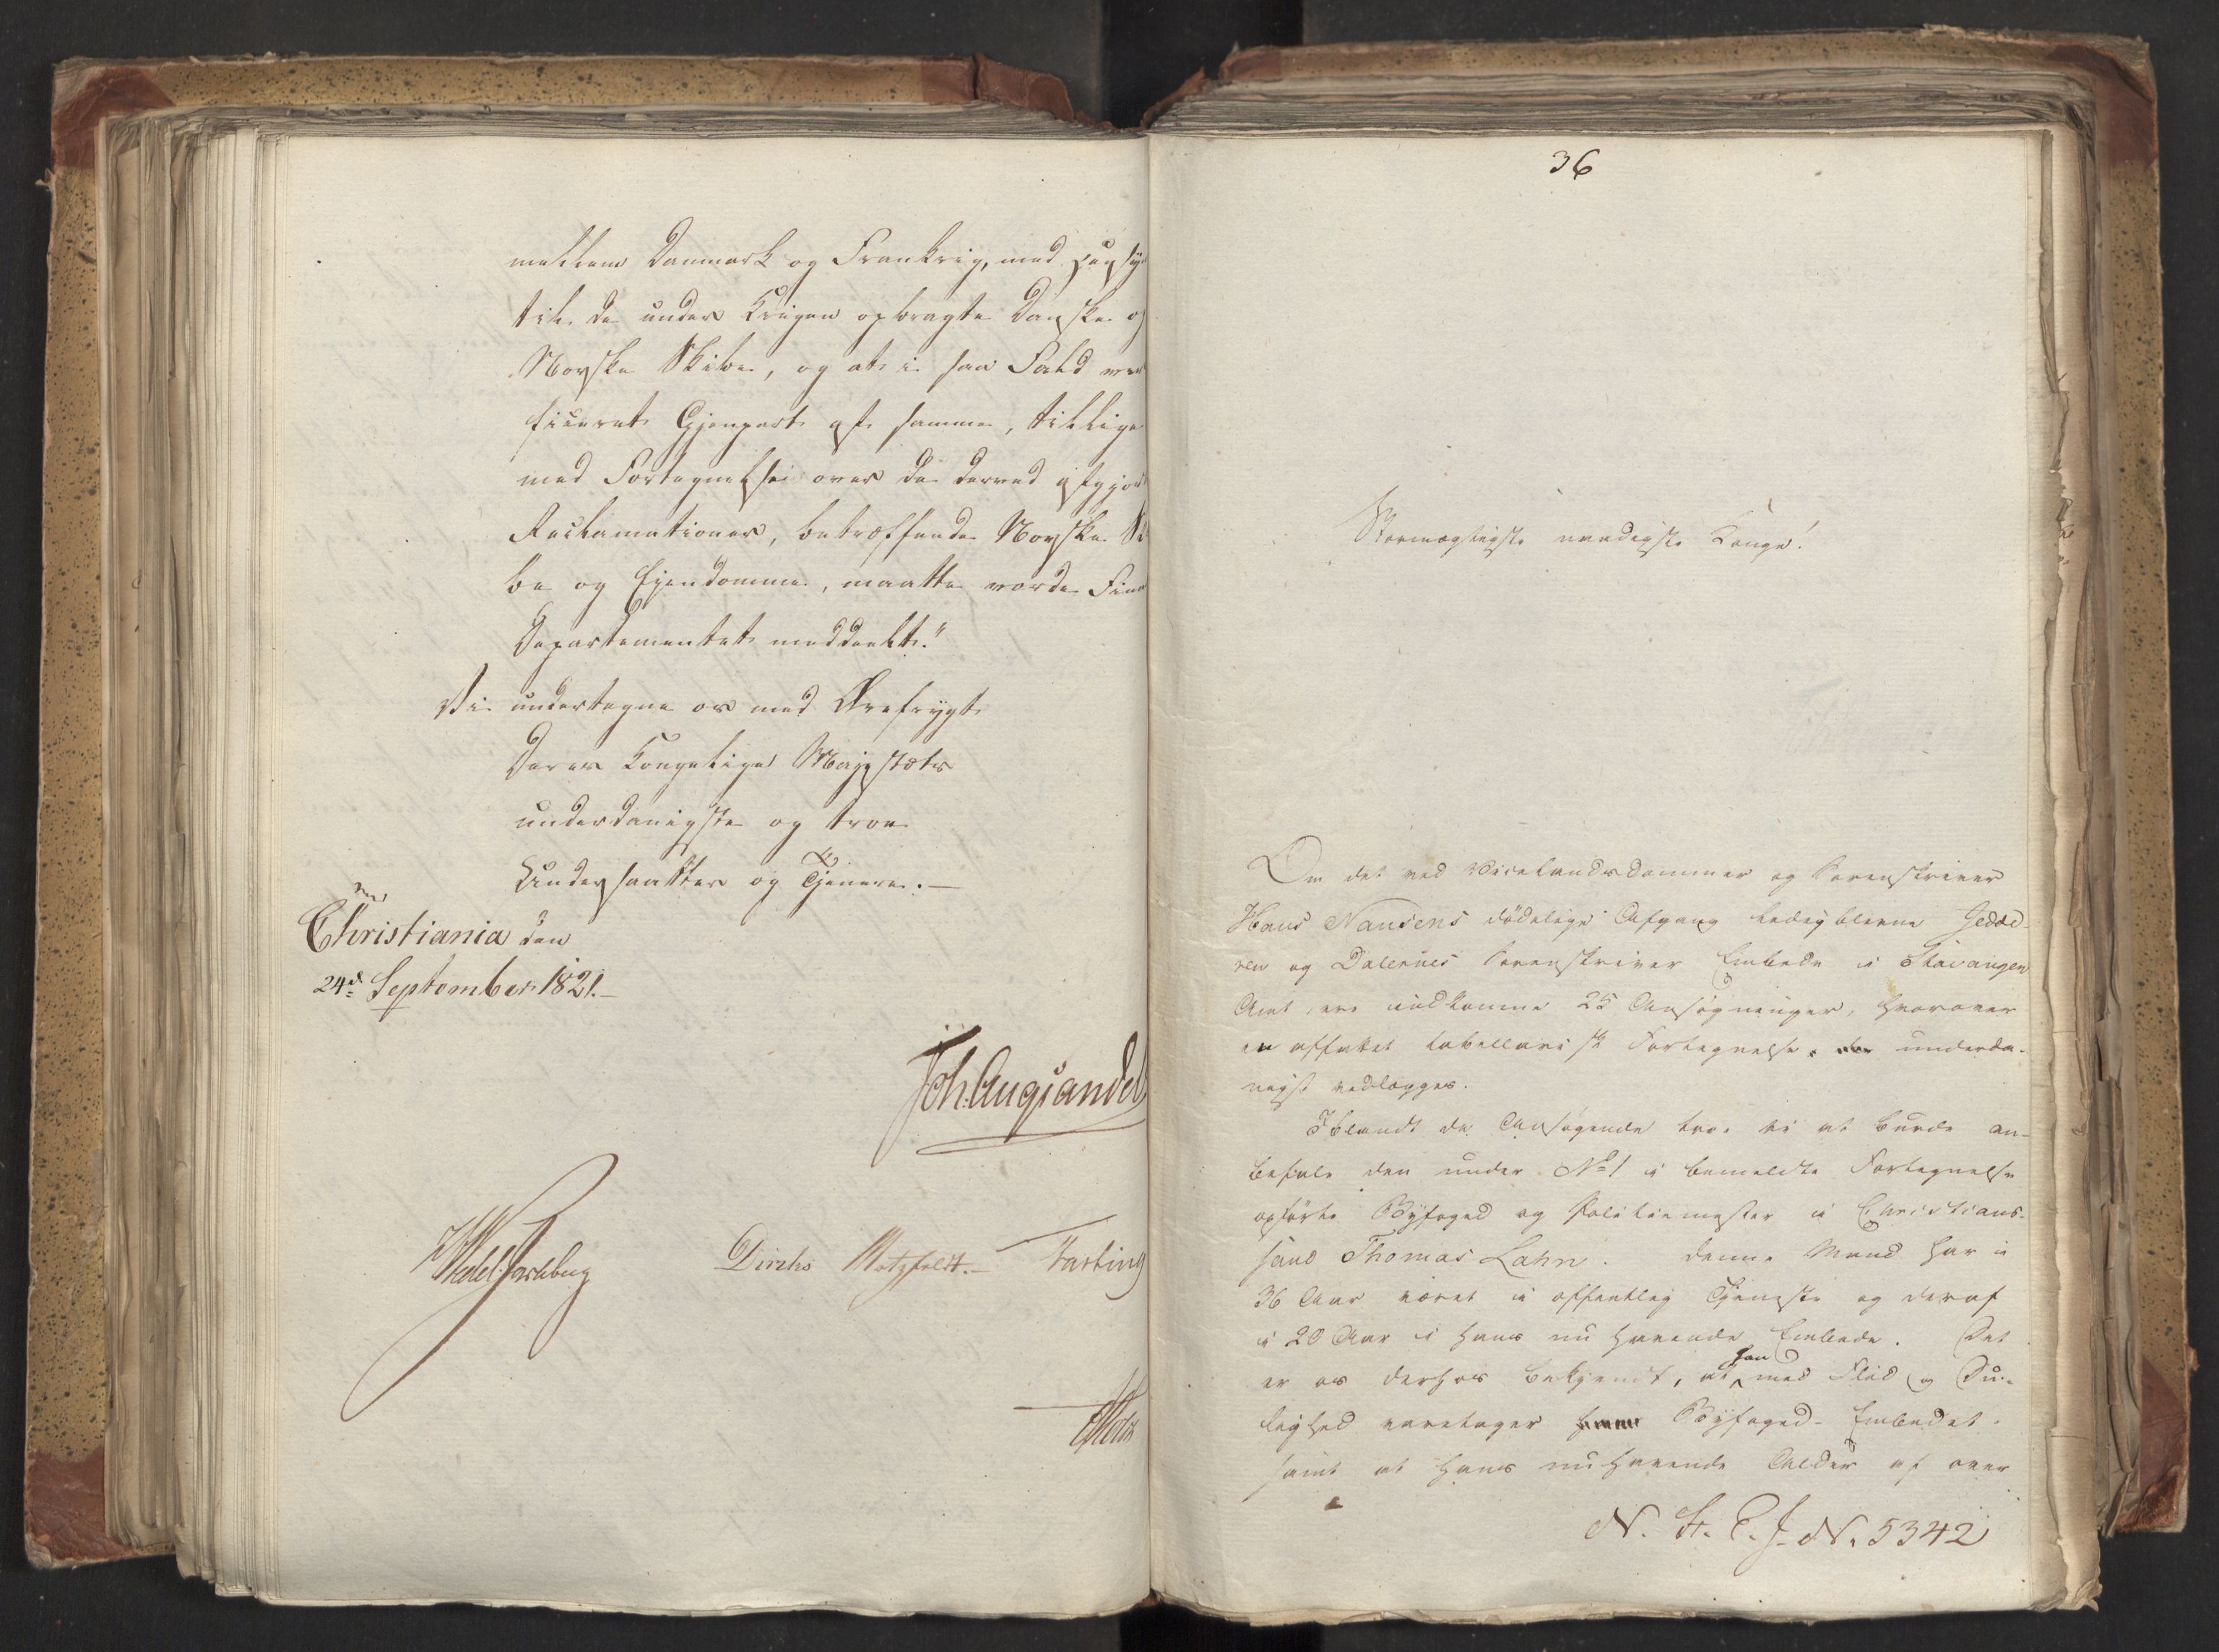 mellem Danmark og Frankrig, med Hensyn
til de under Krigen opbragte Danske og
Norske Skibe, og at i saa Fald
ficeret Gjenpart af samme, tillige
med Fortegnelse over de derved afgjor
Reclamationer, betræffende Norske Ski
be og Ejendomme, maatte vorde Fina
Departementet meddeelt."
Vi undertegne os med Ærefrygt
Deres Kongelige Majestæts
underdanigste og troe
Undersaatter og Tjenere.—
Christiania den
24d September 1821.—
Joh: Aug: Sandel
Wedel Jarlsberg
Diriks Motzfeldt.— Fasting
36
Stormægtigste naadigste Konge!
Om det ved Vicelandsdommer og Sorenskriver
Hans Nansens dödelige Afgang ledigblevne Jedde-
ren og Dalernes Sorenskriver Embede i Stavanger
Amt, ere indkomne 25 Ansøgninger, hvorover
en affattet tabellarisk Fortegnelse underda-
nigst vedlægges.
Iblandt de Ansøgende troe vi at burde an-
befale den under No 1 i bemeldte Fortegnelse
opførte Byfoged og Politiemester i Christians-
sand Thomas Lahn. Denne Mand har i
36 Aar været i offentlig Tjeneste og deraf
i 20 Aar i hans nu havende Embede. Det
er os derhos bekjendt, at han med Flid og Du-
elighed varetager Byfoged-Embedet.
samt at hans nuhavende Alder af over
N. St. C. J. N. 5342